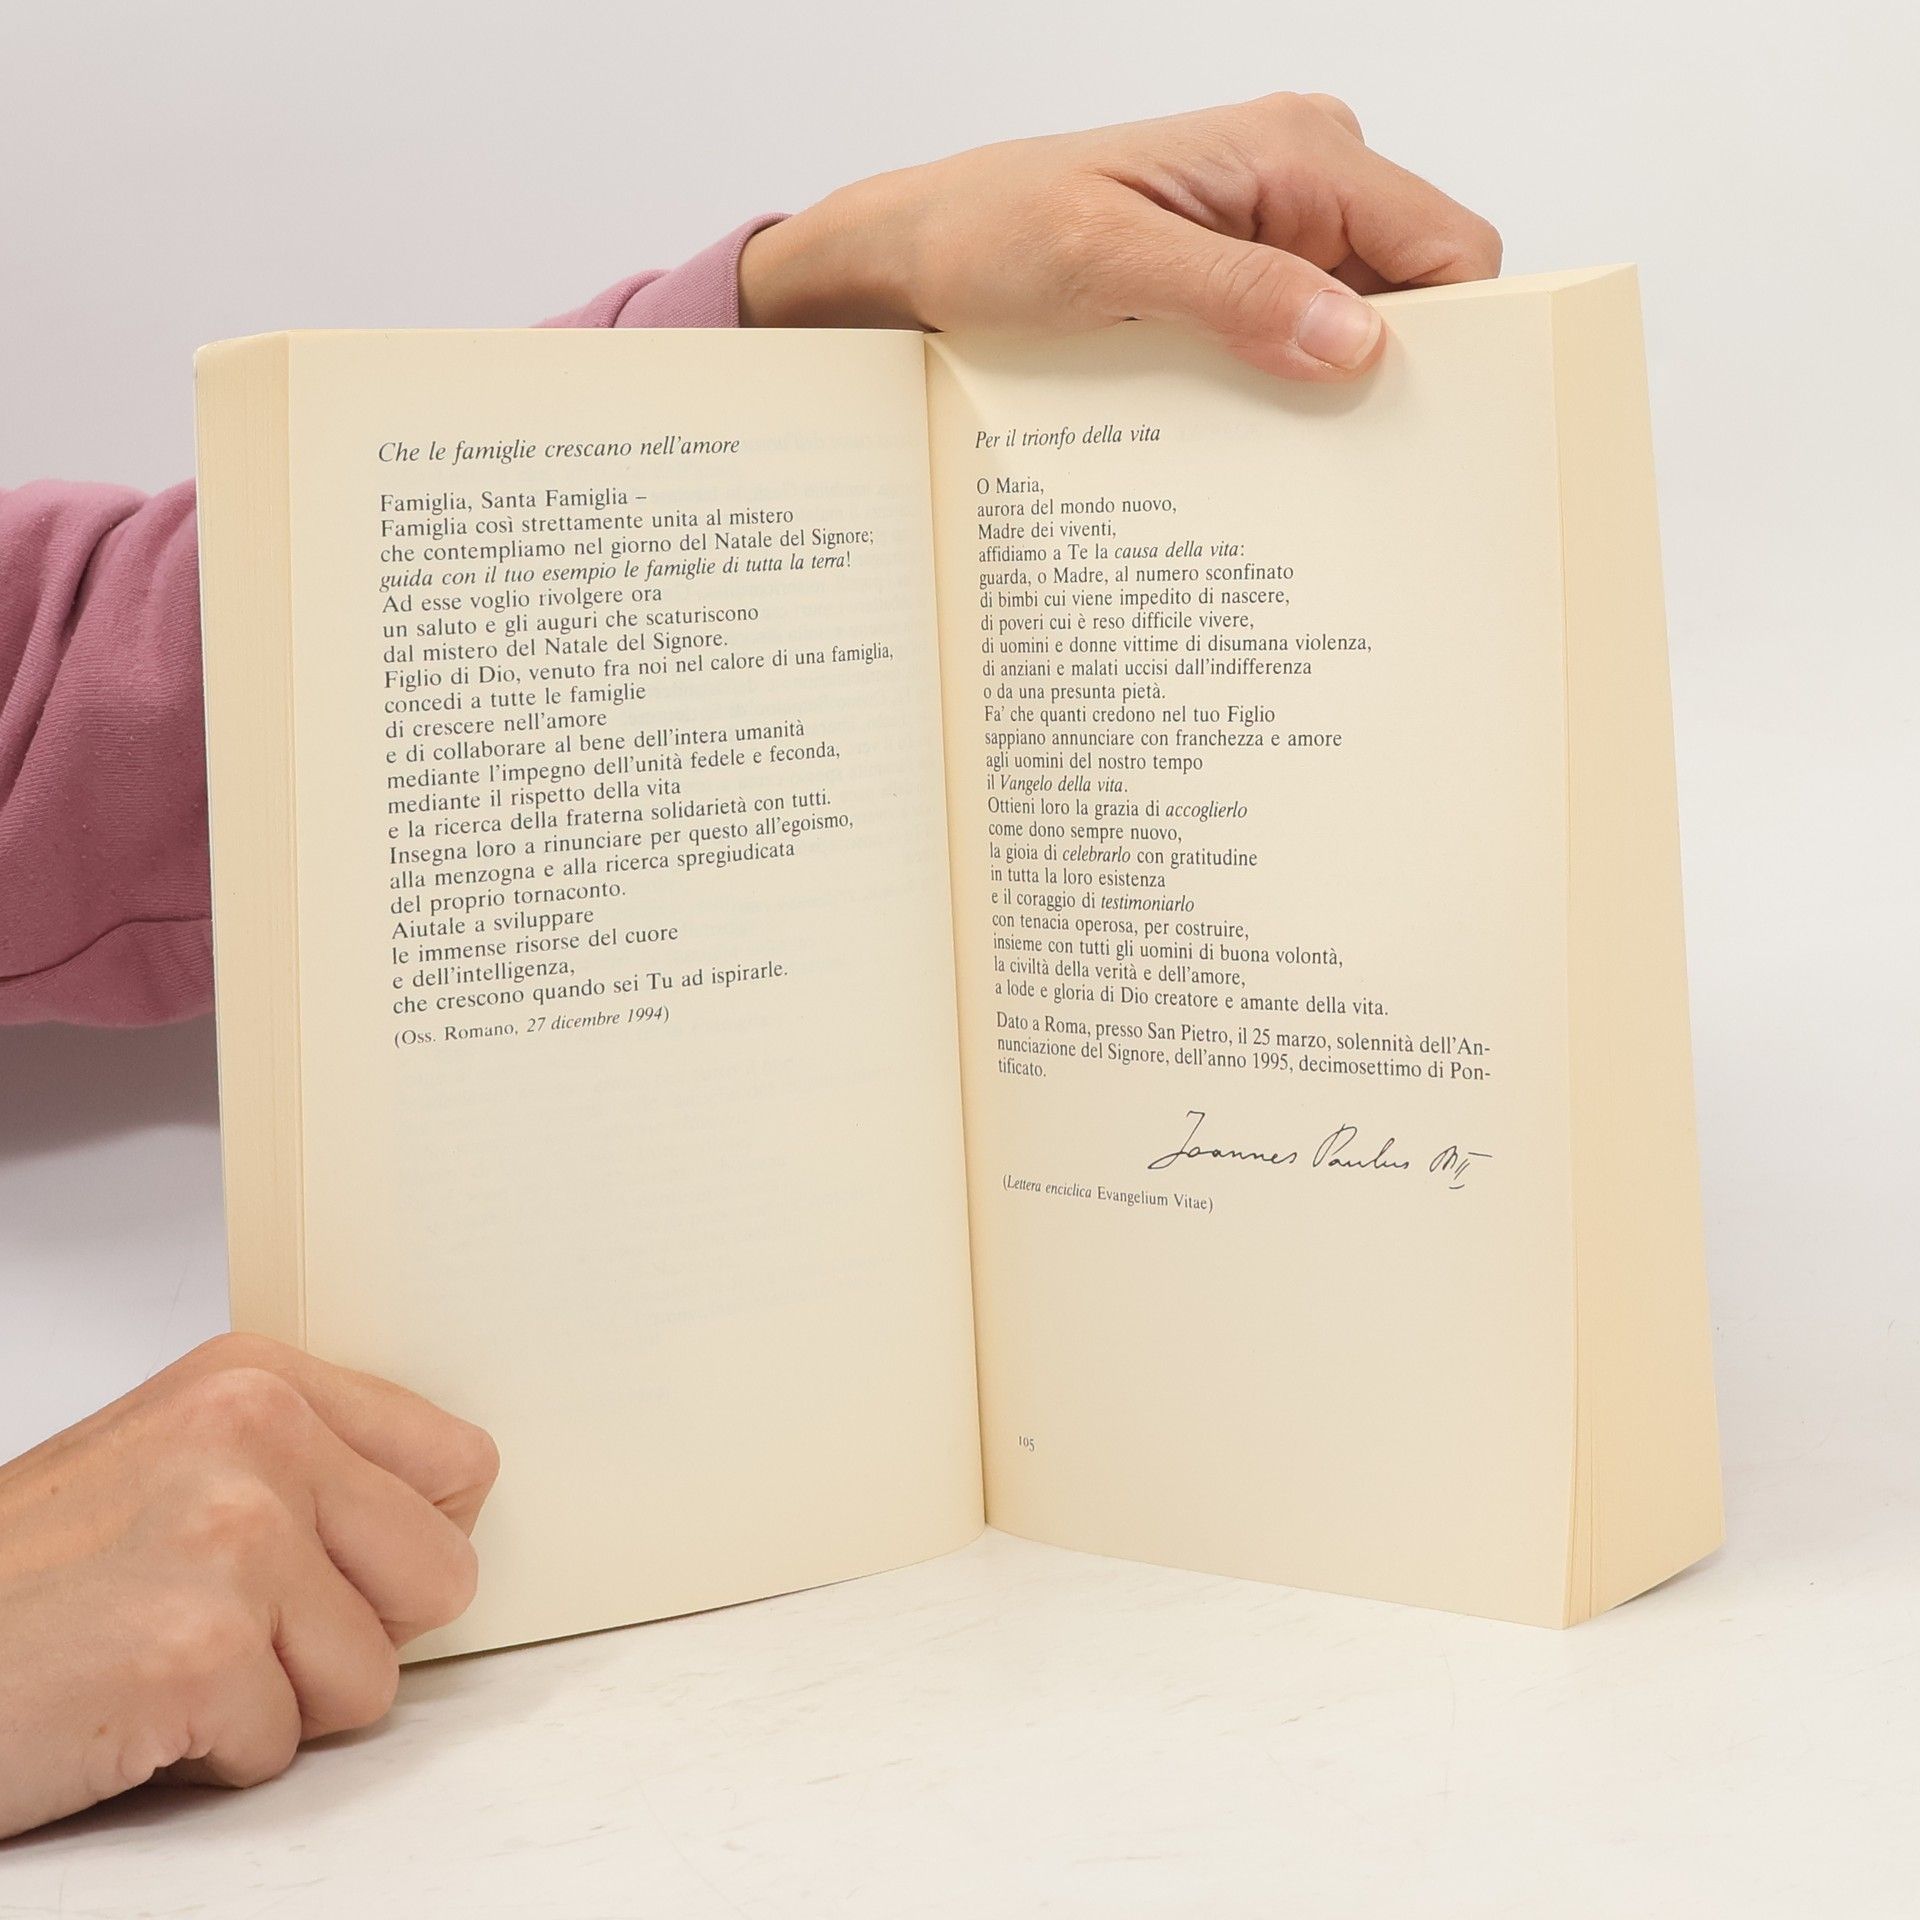 Che le famiglie crescano nell'amore
Famiglia, Santa Famiglia –
Famiglia così strettamente unita al mistero
che contempliamo nel giorno del Natale del Signore;
guida con il tuo esempio le famiglie di tutta la terra!
Ad esse voglio rivolgere ora
un saluto e gli auguri che scaturiscono
dal mistero del Natale del Signore.
Figlio di Dio, venuto fra noi nel calore di una famiglia,
concedi a tutte le famiglie
di crescere nell'amore
e di collaborare al bene dell'intera umanità
mediante l'impegno dell'unità fedele e feconda,
mediante il rispetto della vita
e la ricerca della fraterna solidarietà con tutti.
Insegna loro a rinunciare per questo all'egoismo,
alla menzogna e alla ricerca spregiudicata
del proprio tornaconto.
Aiutale a sviluppare
le immense risorse del cuore
e dell'intelligenza,
che crescono quando sei Tu ad ispirarle.
(Oss. Romano, 27 dicembre 1994)
Per il trionfo della vita
O Maria,
aurora del mondo nuovo,
Madre dei viventi,
affidiamo a Te la causa della vita:
guarda, o Madre, al numero sconfinato
di bimbi cui viene impedito di nascere,
di poveri cui è reso difficile vivere,
di uomini e donne vittime di disumana violenza,
di anziani e malati uccisi dall'indifferenza
o da una presunta pietà.
Fa' che quanti credono nel tuo Figlio
sappiano annunciare con franchezza e amore
agli uomini del nostro tempo
il Vangelo della vita.
Ottieni loro la grazia di accoglierlo
come dono sempre nuovo,
la gioia di celebrarlo con gratitudine
in tutta la loro esistenza
e il coraggio di testimoniarlo
con tenacia operosa, per costruire,
insieme con tutti gli uomini di buona volontà,
la civiltà della verità e dell'amore,
a lode e gloria di Dio creatore e amante della vita.
Dato a Roma, presso San Pietro, il 25 marzo, solennità dell'An-
nunciazione del Signore, dell'anno 1995, decimosettimo di Pon-
tificato.
Joannes Paulus PP II
(Lettera enciclica Evangelium Vitae)
105